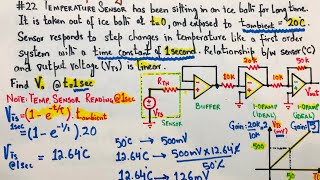 #22 TEMPERATURE SENSOR has been sitting in an ice bath for long time.
It is taken out of ice bath at t=0, and exposed to Tambient = 20°C.
Sensor responds to step changes in temperature like a first order
system with a time constant of 1 second. Relationship b/w sensor (°C)
and output voltage (VTS) is linear.
Find Vo @ t=1sec
NOTE: TEMP. SENSOR READING @ 1sec
VTS = (1-e^-t/τ). Tambient
1sec
= (1-e^-1/1).20
VTS = 12.64°C
@ 1sec
RTH
VTS
SENSOR
BUFFER
10K
20K
10K
I-OPAMP
(ideal)
I-OPAMP
(ideal)
Vout
Gain:
VTS
(mV)
Gain:
500
50°C → 500mV
12.64°C → 500mV x 12.64°C
50°C
12.64°C → 126mV